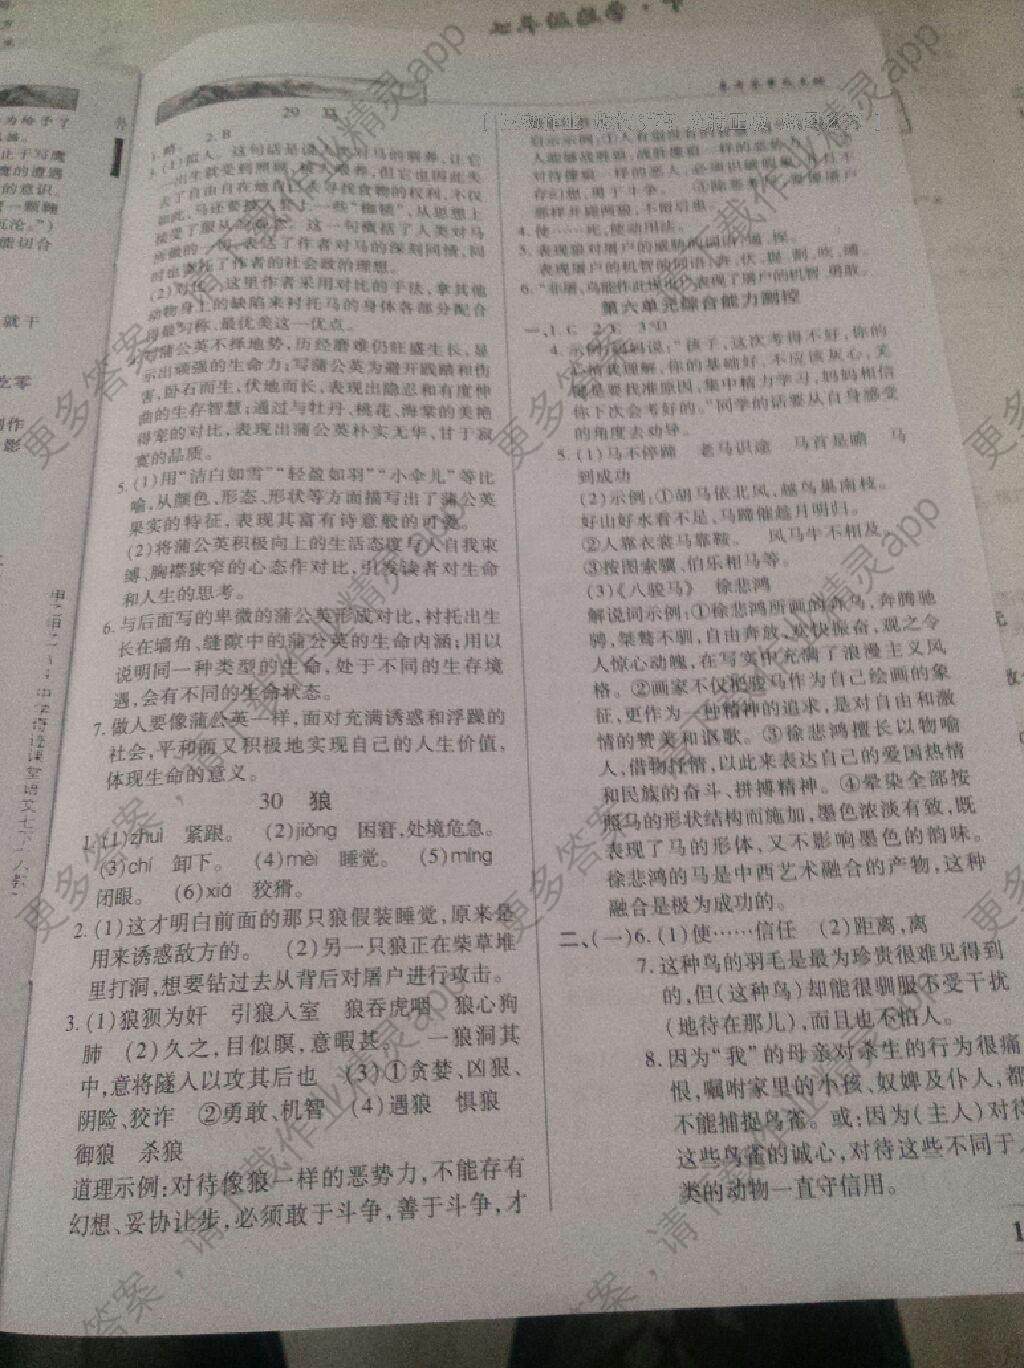 29 马
2. B
一出生就受到照顾,被人喂养,但它也因此失
去了自由自在地自己去寻找食物的权利,不仅
接受了服从的观念。这一句概括了人类对马
所做的一切,表达了作者对马的深刻同情,同
时也寄托了作者的社会政治理想。
(2)对比。这里作者采用对比的手法,拿其他
动物身上的缺陷来衬托马的身体各部分配合
得最匀称、最优美这一优点。
蒲公英不择地势,历经磨难仍旺盛生长,显
示出顽强的生命力;写蒲公英为避开践踏和伤
害,卧石而生,伏地而长,表现出隐忍和有度仲
曲的生存智慧;通过与牡丹、桃花、海棠的美艳
得宠的对比,表现出蒲公英朴实无华,甘于寂
寞的品质。
5. (1)用“洁白如雪”“轻盈如羽”“小伞儿”等比
喻,从颜色、形态、形状等方面描写出了蒲公英
果实的特征,表现其富有诗意般的可爱。
(2)将蒲公英积极向上的生活态度与人自我束
缚、胸襟狭窄的心态作对比,引发读者对生命
和人生的思考。
6. 与后面写的卑微的蒲公英形成对比,衬托出生
长在墙角、缝隙中的蒲公英的生命内涵;用以
说明同一种类型的生命,处于不同的生存境
遇,会有不同的生命状态。
7. 做人要像蒲公英一样,面对充满诱惑和浮躁的
社会,平和而又积极地实现自己的人生价值,
体现生命的意义。
30 狼
1. (1)zhuì 紧跟。 (2)jiǒng 困窘,处境危急。
(3)chí 卸下。 (4)mèi 睡觉。 (5)míng
闭眼。 (6)xiá 狡猾。
2. (1)这才明白前面的那只狼假装睡觉,原来是
用来诱惑敌方的。 (2)另一只狼正在柴草堆
里打洞,想要钻过去从背后对屠户进行攻击。
3. (1)狼狈为奸 引狼入室 狼吞虎咽 狼心狗
肺 (2)久之,目似瞑,意暇甚。 一狼洞其
中,意将隧入以攻其后也 (3)①贪婪、凶狠、
阴险、狡诈 ②勇敢、机智 (4)遇狼 惧狼
御狼 杀狼
道理示例:对待像狼一样的恶势力,不能存有
幻想、妥协让步,必须敢于斗争,善于斗争,才
存幻想,勇于斗争。 ③除恶务尽,要像屠户
那样并毙两狼,不留后患。
4. 使……死,使动用法。
表现屠户的机智的词语:奔、伏、
第六单元综合能力测控
一、1. C 2. C 3. D
4. 示例:妈妈说:“孩子,这次考得不好,你的
心情我理解,你的基础好,不应该灰心,尤
其是要找准原因,集中精力学习,妈妈相信
你下次会考好的。”同学的话要从自身感受
的角度去劝导。
5. (1)马不停蹄 老马识途 马首是瞻 马
到成功
(2)示例:①胡马依北风,越鸟巢南枝。
好山好水看不足,马蹄催趁月明归。
②人靠衣裳马靠鞍。 风马牛不相及。
③按图索骥、伯乐相马等。
(3)《八骏马》 徐悲鸿
解说词示例:①徐悲鸿所画的奔马,奔腾驰
骋,桀骜不驯,自由奔放,欢快振奋,观之令
人惊心动魄,在写实中充满了浪漫主义风
格。②画家不仅把骏马作为自己绘画的象
征,更作为一种精神的追求,是对自由和激
情的赞美和讴歌。③徐悲鸿擅长以物喻
人,借物抒情,以此来表达自己的爱国热情
和民族的奋斗、拼搏精神。④晕染全部按
照马的形状结构而施加,墨色浓淡有致,既
表现了马的形体,又不影响墨色的韵味。
徐悲鸿的马是中西艺术融合的产物,这种
融合是极为成功的。
二、(一)6. (1)使……信任 (2)距离,离
7. 这种鸟的羽毛是最为珍贵很难见得到
的,但(这种鸟)却能很驯服不受干扰
(地待在那儿),而且也不怕人。
8. 因为“我”的母亲对杀生的行为很痛
恨,嘱咐家里的小孩、奴婢及仆人,都
不能捕捉鸟雀。或:因为(主人)对待
这些鸟雀的诚心,对待这些不同于
类的动物一直守信用。
更多答案,请下载作业精灵app